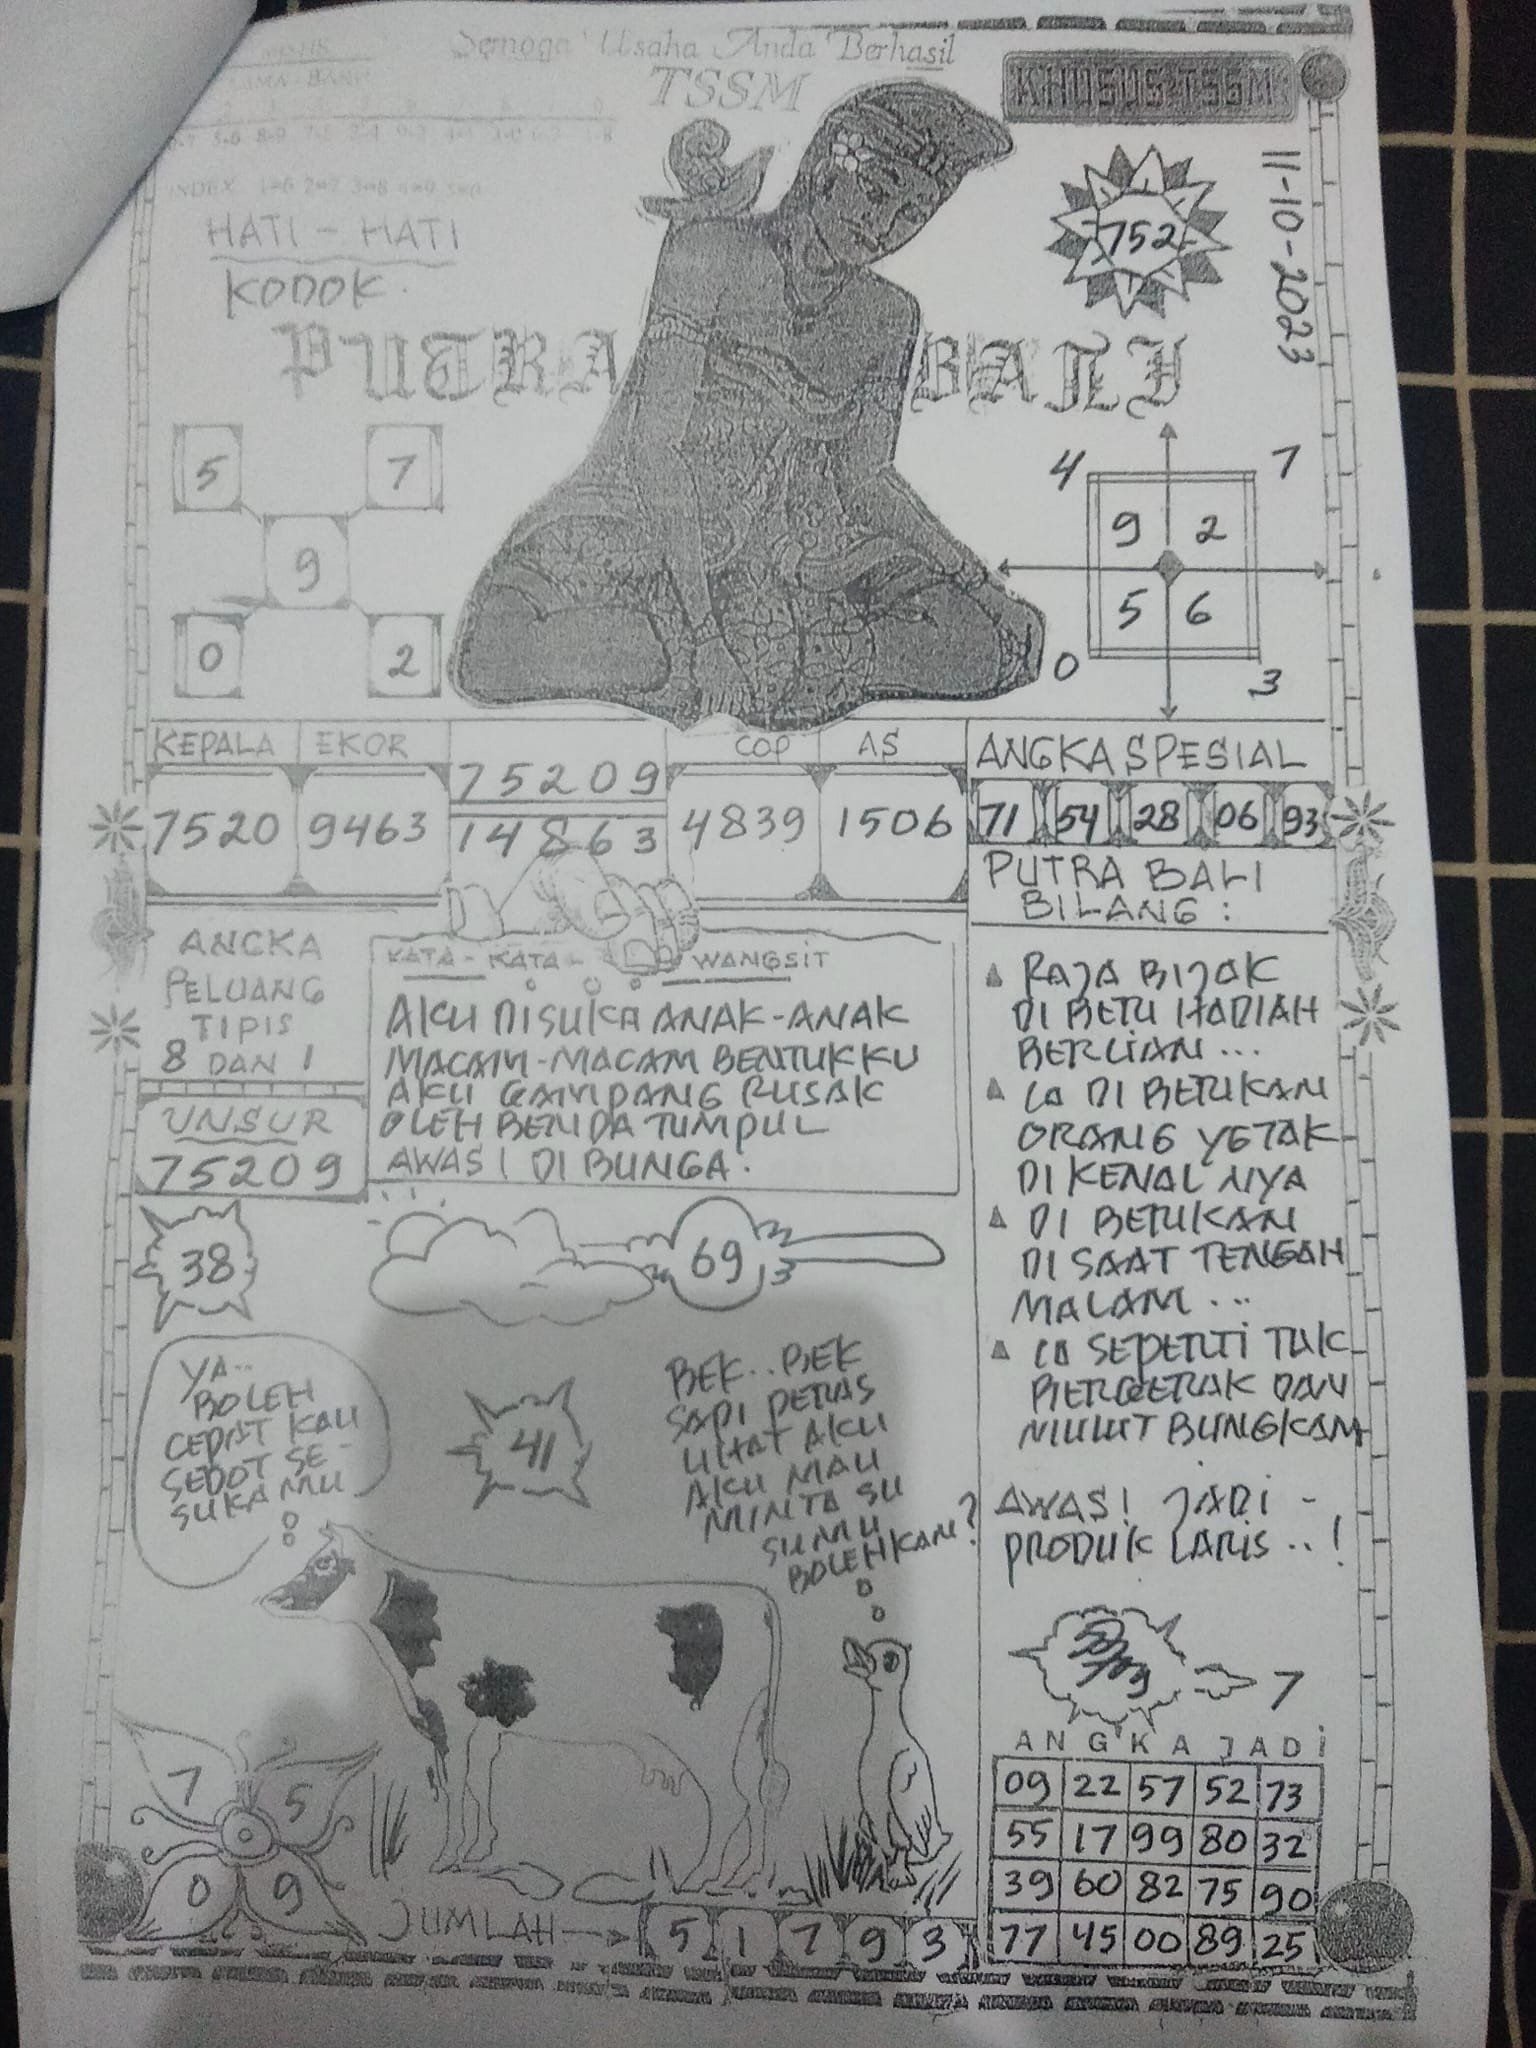 Semoga Usaha Anda Berhasil
TSSM
KHUSUS TSSM
11-10-2023
INDEX 1=6 2=7 3=8 4=9 5=0
HATI - HATI
KODOK.
752
PUTRA BALI
5 7
9
0 2
4 7
9 2
5 6
0 3
KEPALA EKOR
7520 9463
75209
14863
COP AS
4839 1506
ANGKA SPESIAL
71 54 28 06 93
ANGKA
PELUANG
TIPIS
8 DAN 1
UNSUR
75209
KATA - KATA - WANGSIT
AKU DISUKA ANAK-ANAK
MACAM-MACAM BENTUKKU
AKU GAMPANG RUSAK
OLEH BENDA TUMPUL
AWAS! DI BUNGA.
PUTRA BALI
BILANG :
RAJA BIJAK
DI BERI HADIAH
BERLIAN...
DI
ORANG YG TAK
DI KENAL NYA
DI
DI SAAT TENGAH
MALAM...
SEPERTI TAK
BERGERAK DAN
MULUT BUNGKAM
AWAS! JADI -
PRODUK LARIS..!
38
69
3
41
YA..
BOLEH
CEPAT KAU
SEDOT SE-
SUKA MU
BEK.. BEK
SAPI PERAS
LIHAT AKU
AKU MAU
MINTA SU
SUMU
BOLEHKAN?
7
7 5
0 9
JUMLAH
5 1 7 9 3
ANGKA JADI
09 22 57 52 73
55 17 99 80 32
39 60 82 75 90
77 45 00 89 25